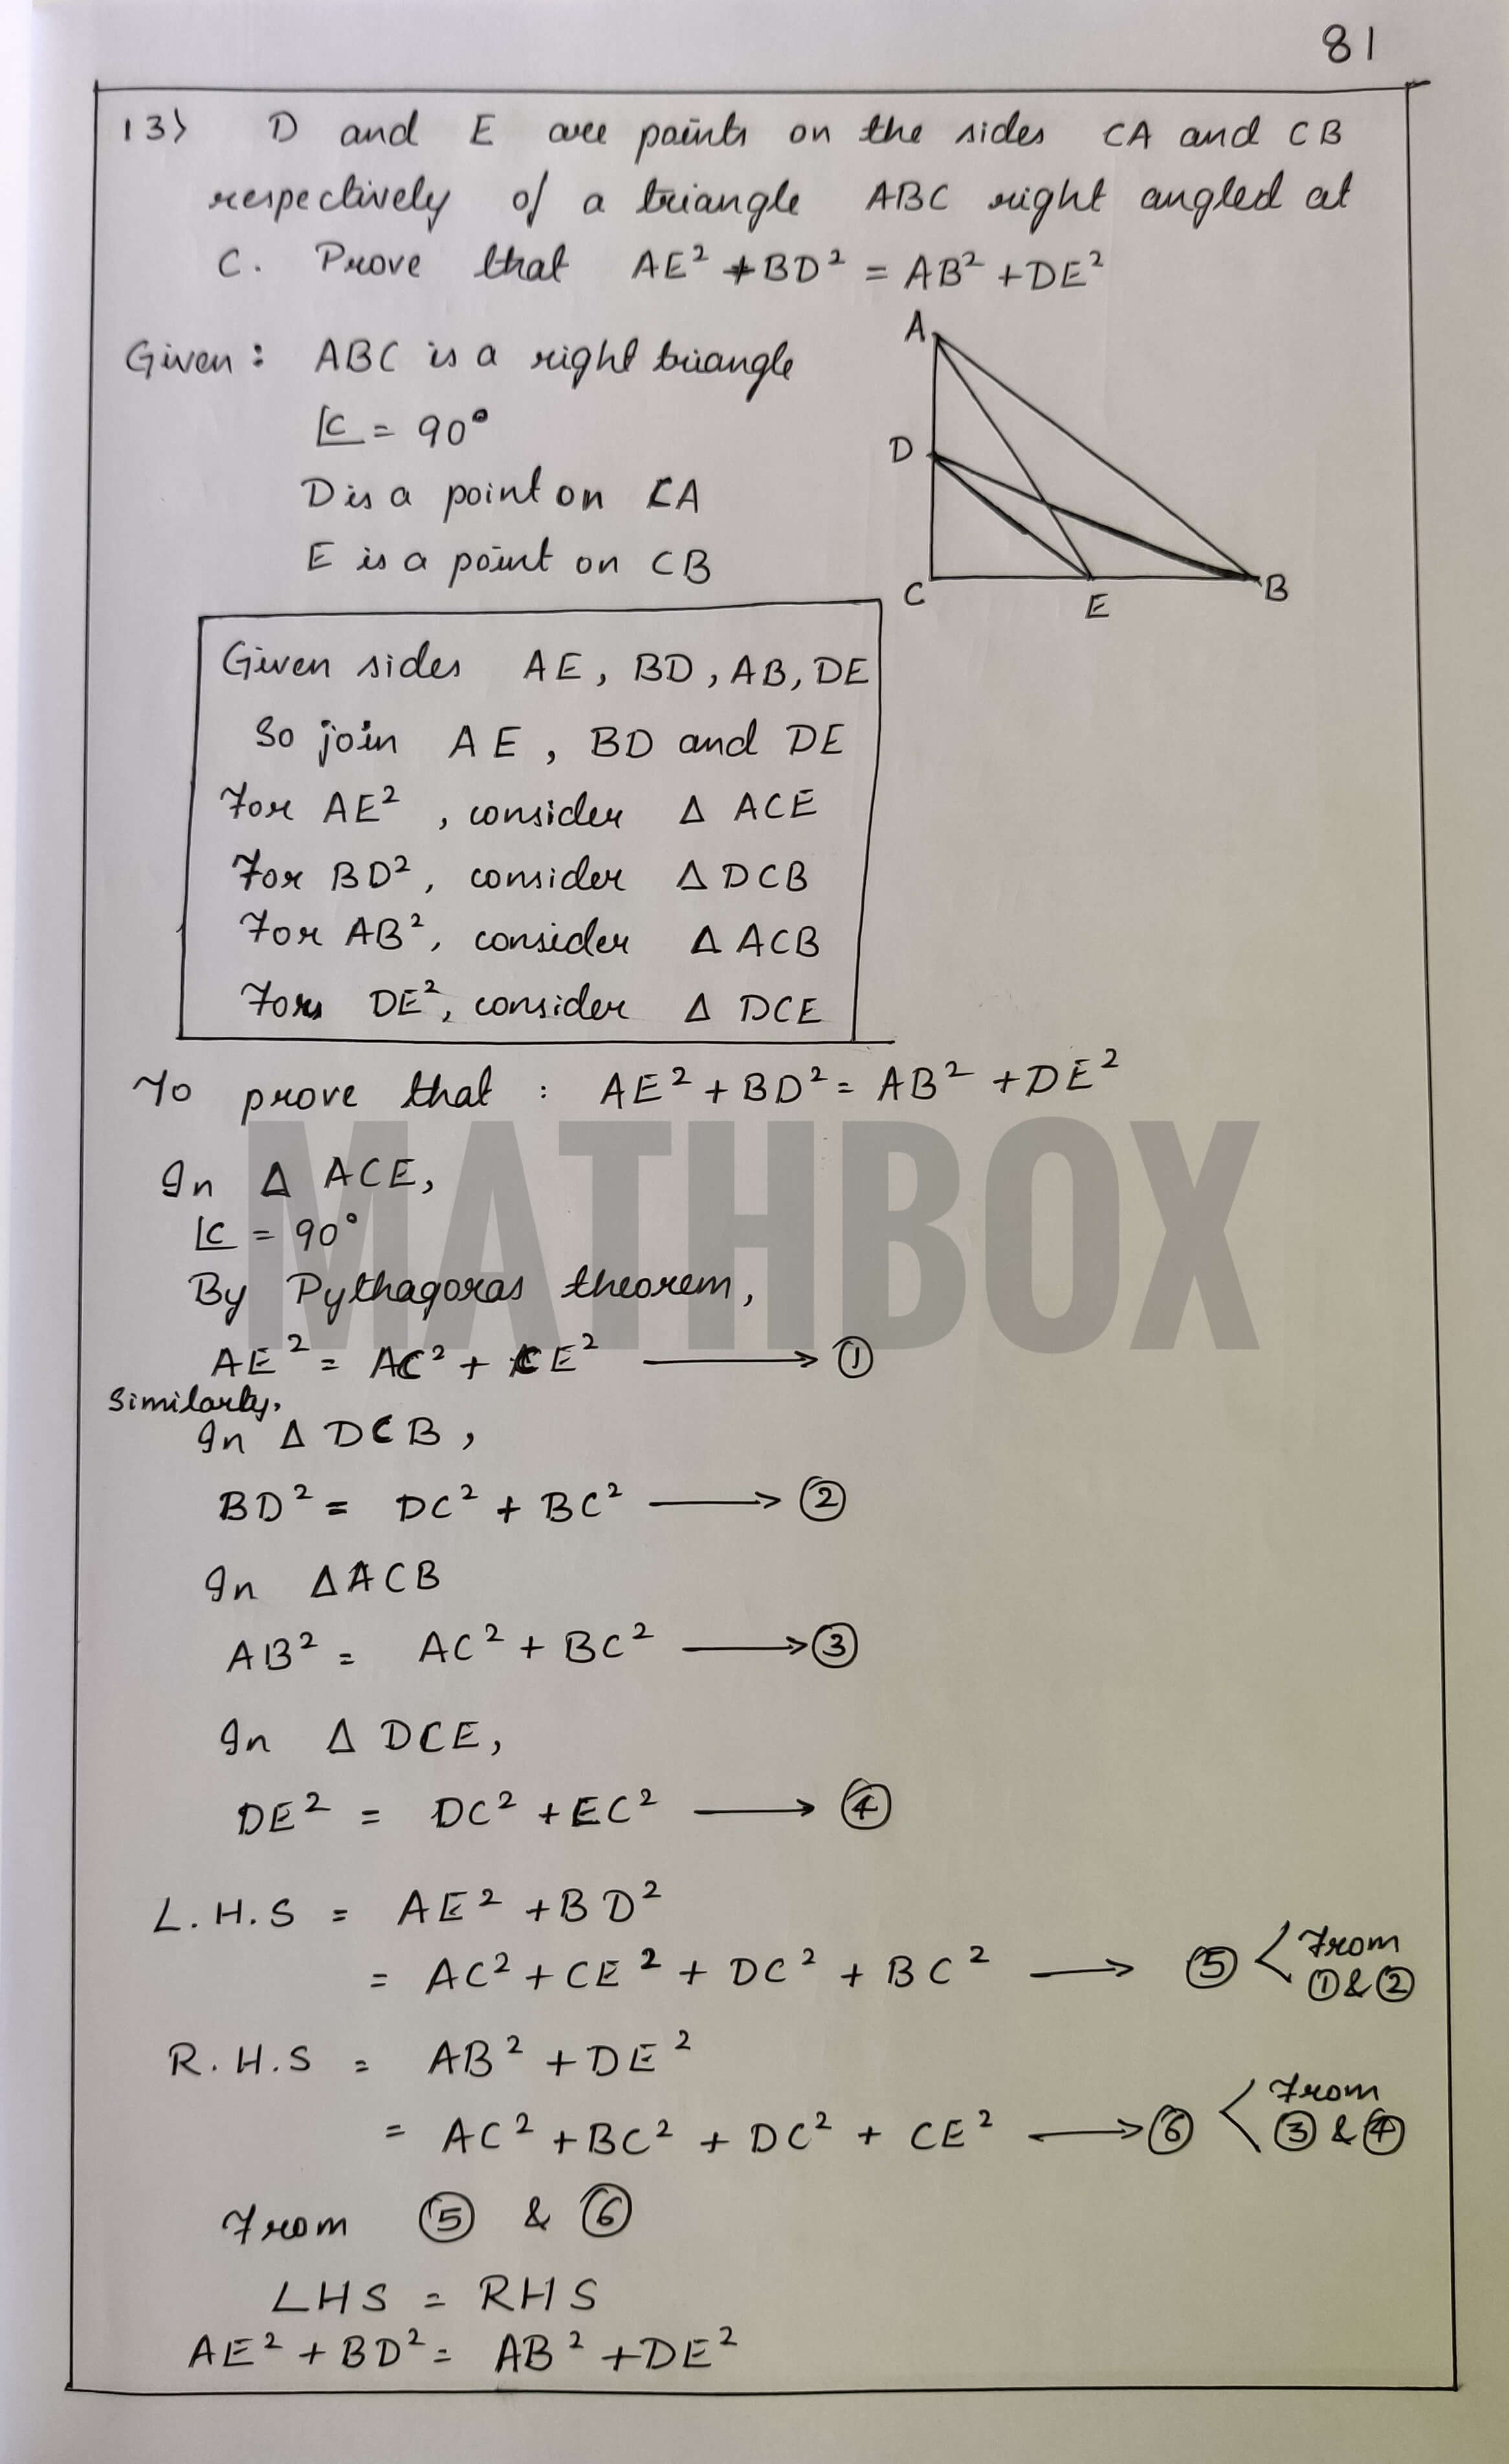 81
13) D and E are points on the sides CA and CB
respectively of a triangle ABC right angled at
C. Prove that AE² + BD² = AB² + DE²
Given : ABC is a right triangle
∠C = 90°
D is a point on CA
E is a point on CB
A
D
C
E
B
Given sides AE, BD, AB, DE
So join AE, BD and DE
For AE², consider Δ ACE
For BD², consider Δ DCB
For AB², consider Δ ACB
For DE², consider Δ DCE
To prove that : AE² + BD² = AB² + DE²
MATHBOX
In Δ ACE,
∠C = 90°
By Pythagoras theorem,
AE² = AC² + CE² → ①
Similarly,
In Δ DCB,
BD² = DC² + BC² → ②
In Δ ACB
AB² = AC² + BC² → ③
In Δ DCE,
DE² = DC² + EC² → ④
L.H.S = AE² + BD²
= AC² + CE² + DC² + BC² → ⑤ < From ① & ②
R.H.S = AB² + DE²
= AC² + BC² + DC² + CE² → ⑥ < From ③ & ④
From ⑤ & ⑥
LHS = RHS
AE² + BD² = AB² + DE²